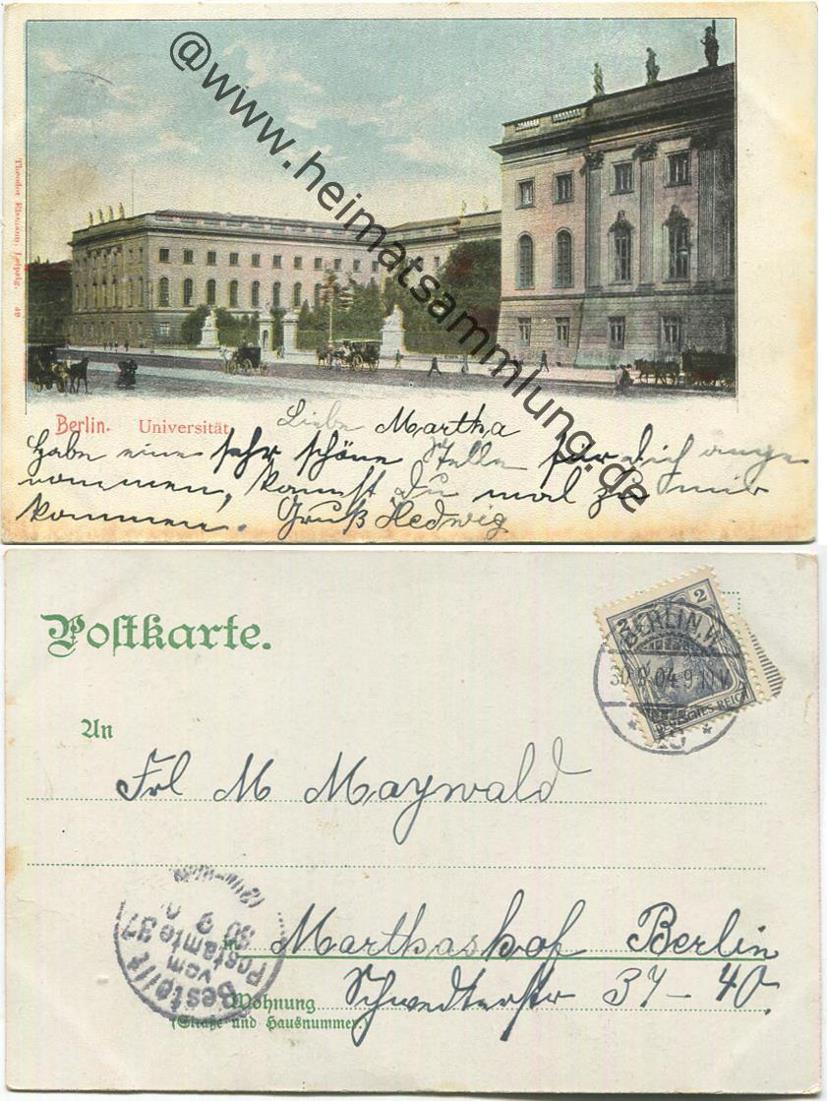 @www.heimatsammlung.de
Theodor Eismann, Leipzig. 49
Berlin. Universität
Liebe Martha
Habe eine sehr schöne Stelle für dich ange
nommen, kannst Du mal zu mir
kommen. Gruß Hedwig
Postkarte.
2 2
BERLIN.W.
30.9.04.9-10V.
DEUTSCHES REICH
An
Frl M Maywald
Bestellt
vom
Postamte 37
30 9
in Marthashof Berlin
Wohnung Schwedterstr 37-40.
(Straße und Hausnummer.)